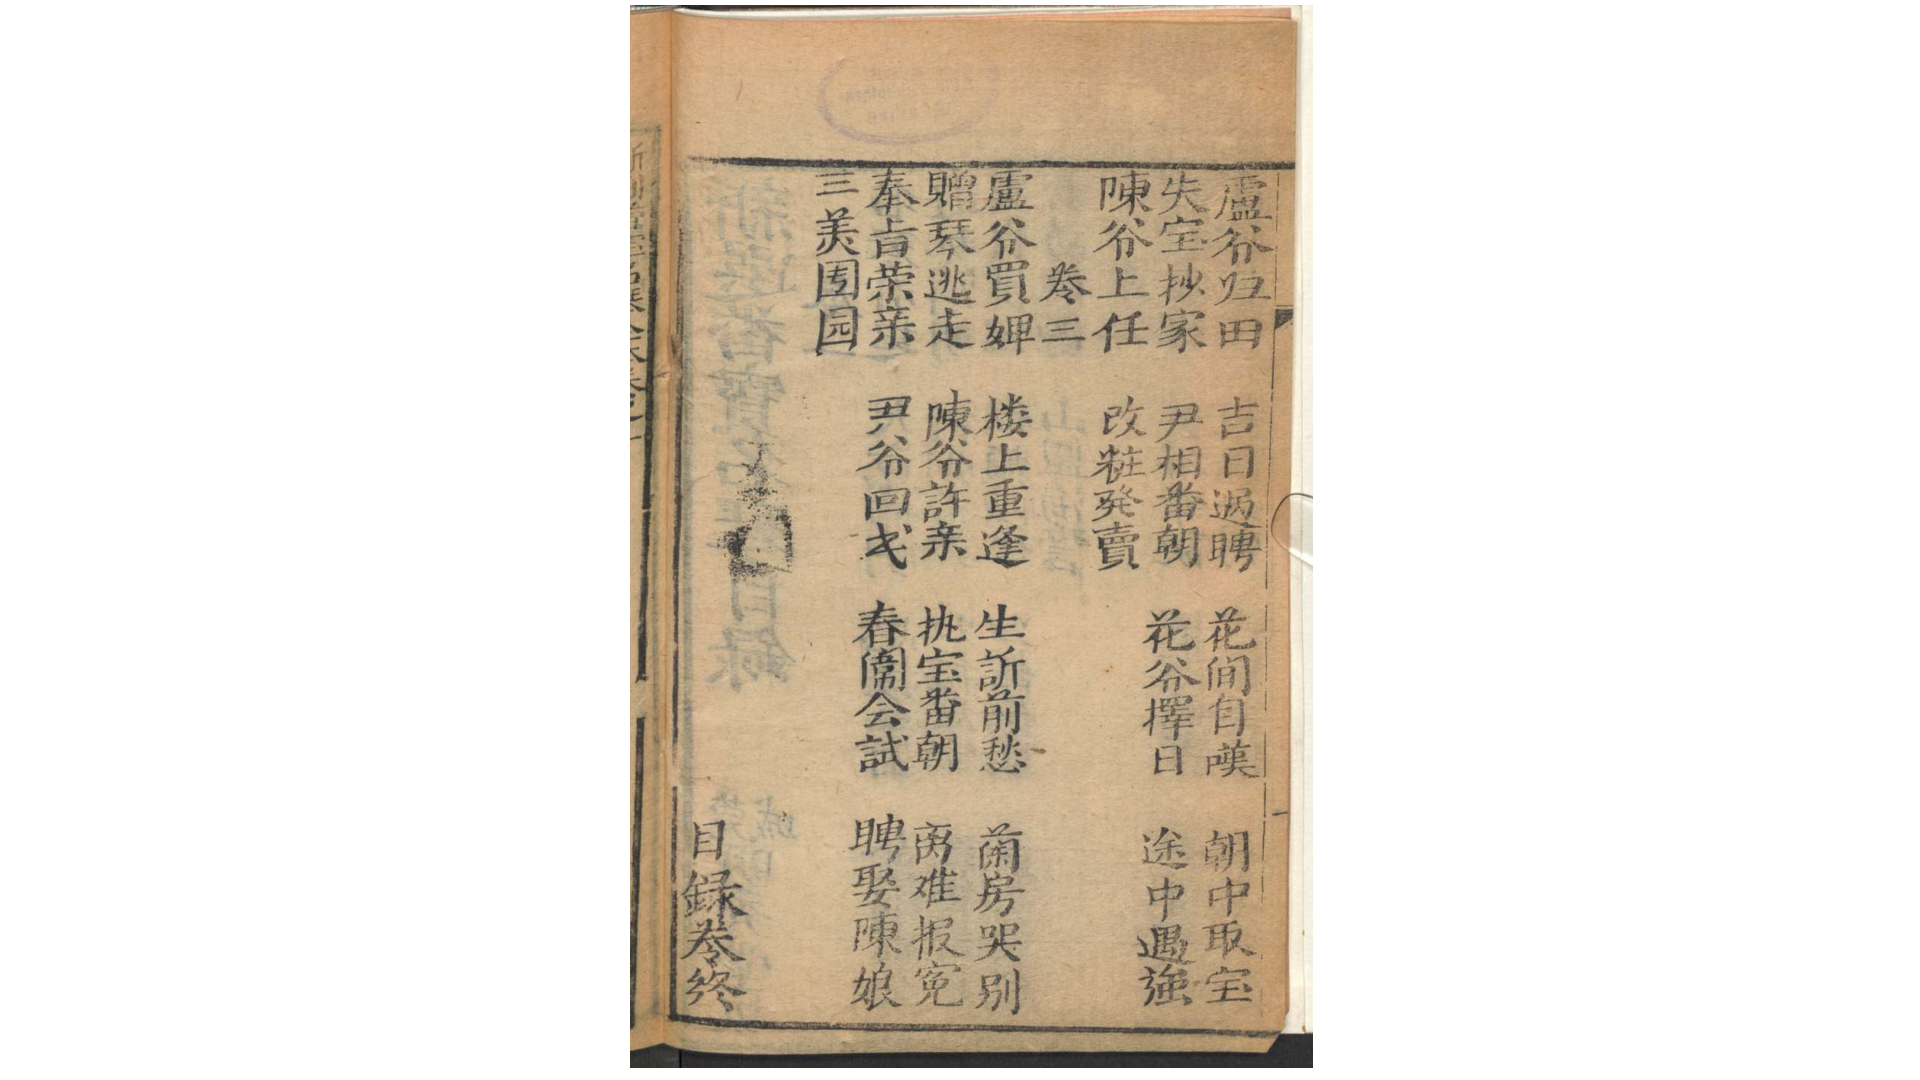 盧爷归田 吉日过聘 花间自嘆 朝中取宝
失宝抄家 尹相番朝 花爷擇日 途中遇強
陳爷上任 改粧発賣
卷三
盧爷買婢 楼上重逢 生訴前愁 蘭房哭别
贈琴逃走 陳爷許亲 执宝番朝 离难报冤
奉旨荣亲 尹爷回戈 春闱会試 聘娶陳娘
三美团园
目録卷終